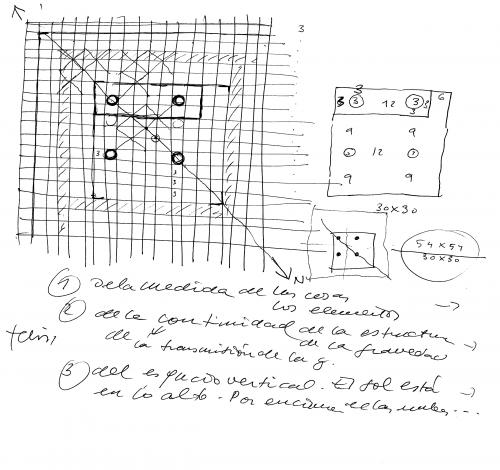 3
3
6
3
3
12
3
3
3
9
9
12
9
9
3
3
3
3
30x30
54 x 54
30x30
N
1 De la medida de las cosas
los elementos
2 de la continuidad de la estructura
de de la gravedad
la transmisión de la g.
3 del espacio vertical. El sol está
en lo alto. Por encima de las nubes...